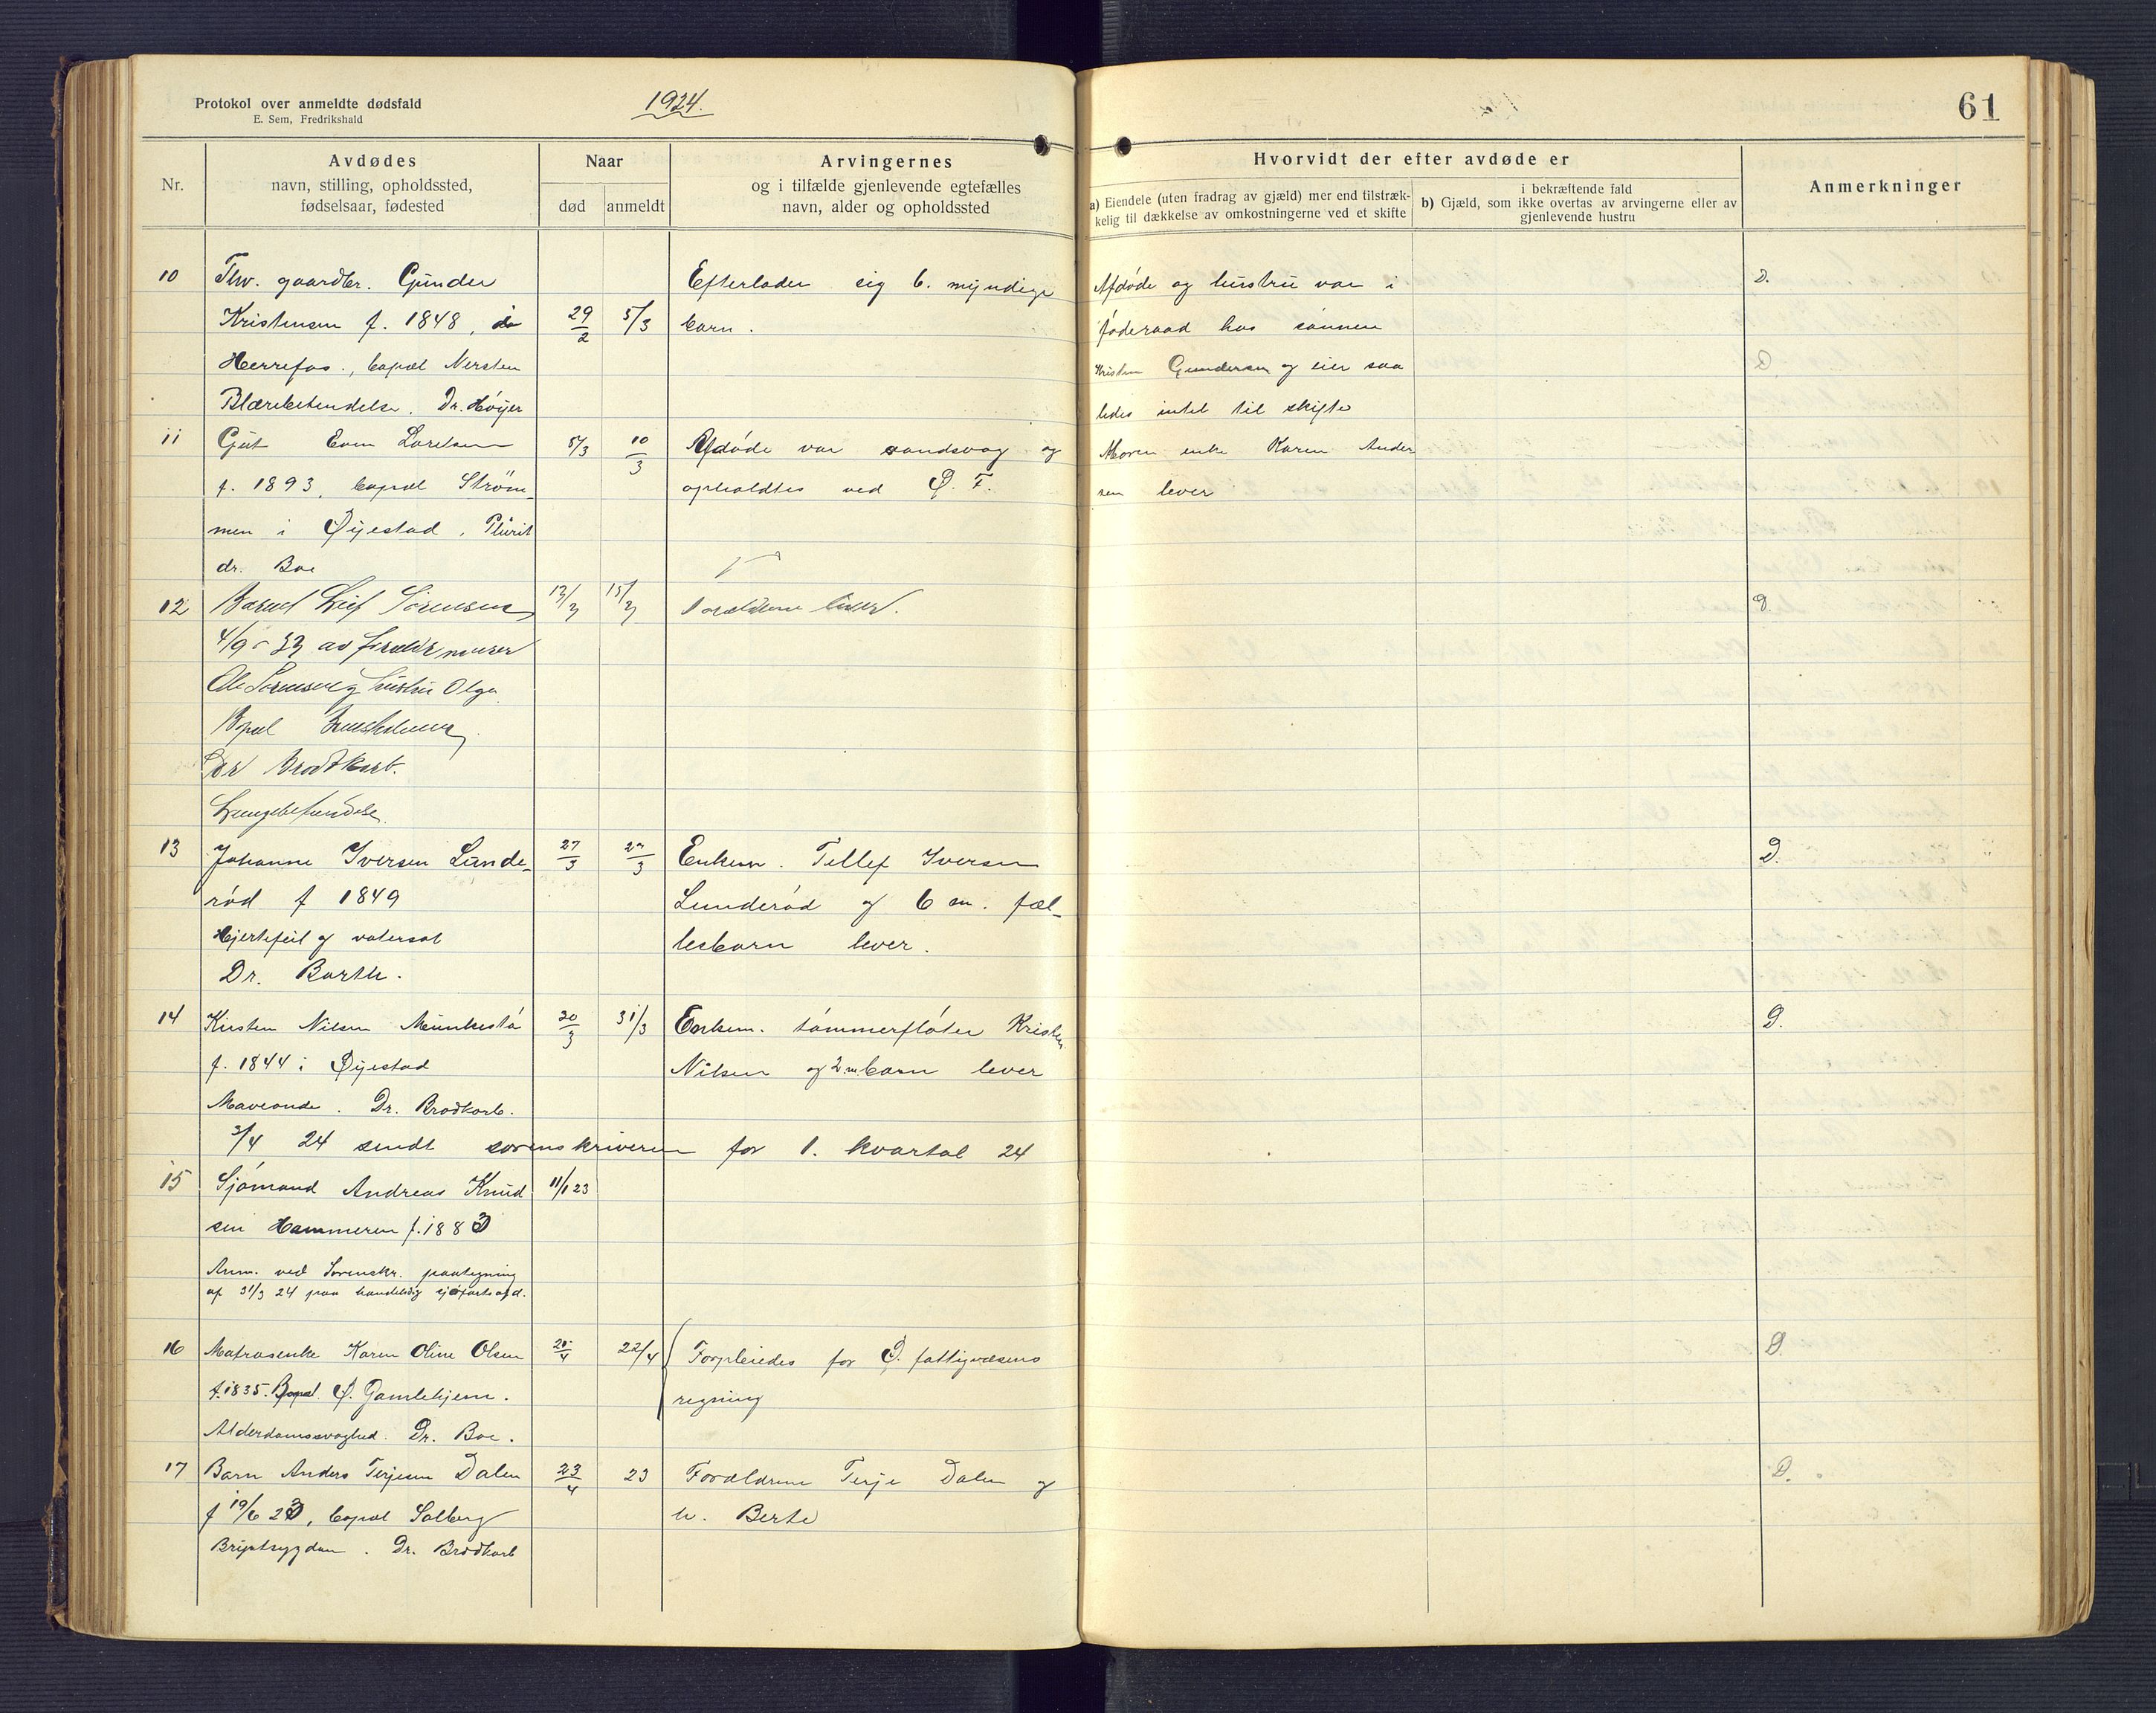 Protokol over anmeldte dødsfald
E. Sem, Fredrikshald
1924.
61
Nr.
Avdødes
navn, stilling, opholdssted,
fødselsaar, fødested
Naar
død
anmeldt
Arvingernes
og i tilfælde gjenlevende egtefælles
navn, alder og opholdssted
Hvorvidt der efter avdøde er
a) Eiendele (uten fradrag av gjæld) mer end tilstræk-
kelig til dækkelse av omkostningerne ved et skifte
i bekræftende fald
b) Gjæld, som ikke overtas av arvingerne eller av
gjenlevende hustru
Anmerkninger
10 gaardbr. Gunder Efterlader sig 6. myndige Afdøde og hustru var i D.
Kristensen f. 1848, 29/2 5/3 barn. føderaad hos sønnen
Herrefos., bopæl Nersten Kristen Gundersen og eier saa
Blærebetendelse. Dr. Høyer ledes intet til skifte
11 Gut 5/3 10/3 Afdøde var aandsvag og Moren enke Karen Ander
f. 1893, bopæl Strøm- opholdtes ved Ø. F. sen lever
men i Øyestad, Plevrit
dr. Boe
12 Barnet Leif Sørensen 15/3 Forældrene lever. D.
av forældr murer
Ole Sørensen og hustru Olga
Bopæl
Dr Brodtkorb.
Lungebetændelse
13 Johanne Iversen Lunde- 27/3 Enkem. Tellef Iversen D.
rød f 1849 Lunderød og 6 m. fæl-
Hjertefeil og vatersot lesbarn lever.
Dr. Barth.
14 Kirsten Nilsen 31/3 Enkem. tømmerfløter Kristen D.
f. 1844 i Øyestad Nilsen og 2 m barn lever
Maveonde. Dr. Brodkorb.
3/4 24 sendt sorenskriveren for 1. kvartal 24
15 Sjømand Andreas Knud 11/1 23
sen Hammeren f. 1883
Anm. ved Sorenskr. paategning
af 31/3 24 paa sjøfartsafd.
16 Matrosenke Karen Oline Olsen 22/4 Forpleiedes for Ø. fattigvæsens D.
f. 1835. Bopæl. Ø. Gamlehjem. regning
Alderdomssvaghed. Dr. Boe.
17 Barn Anders Terjesen Dalen 23/4 23 Forældrene Terje Dalen og D.
f 19/6 23, bopæl Solberg h. Berte
Dr. Brodkorb